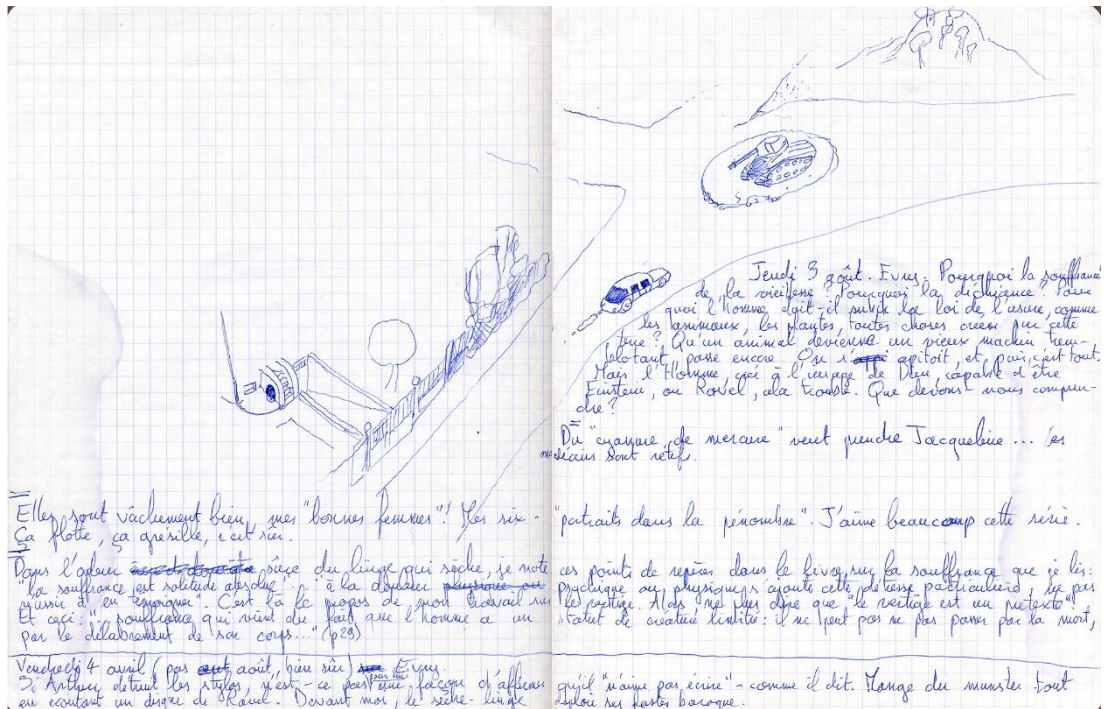 Jeudi 3 août. Evry. Pourquoi la souffrance
de la vieillesse? Pourquoi la déchéance? Pour
quoi l'homme doit-il subir la loi de l'usure, comme
les animaux, les plantes, toutes choses créées sur cette
terre? Qu'un animal devienne un vieux machin trem-
blotant, passe encore. On s'apitoit, et puis c'est tout.
Mais l'Homme, créé à l'image de Dieu, capable d'être
Einstein, ou Ravel, cela trouble. Que devons nous compren-
dre?
Du "cyanure de mercure" veut prendre Jacqueline... les
médecins sont rétifs.
Elles sont vâchement bien, mes "bonnes femmes"! Mes six - "portraits dans la pénombre". J'aime beaucoup cette série.
Ça flotte, ça grésille, c'est sûr.
Dans l'odeur sûre du linge qui sèche, je note ces points de repères dans le livre sur la souffrance que je lis:
"la souffrance est solitude absolue". "à la douleur psychique ou physique s'ajoute cette détresse particulière, ne pas
réussir à en témoigner. C'est là le propos de mon travail sur le vertige. Alors ne plus dire que le vertige est un prétexte"
Et ceci: "souffrance qui vient du fait que l'homme a un statut de créature limitée: il ne peut pas ne pas passer par la mort,
par le délabrement de son corps..." (p28)
Vendredi 4 avril (pas août, bien sûr) Evry.
Si Arthur détruit les stylos, n'est-ce pas pour lui une façon d'affirmer qu'il "n'aime pas écrire" - comme il dit. Mange du munster tout
en écoutant un disque de Ravel. Devant moi, le sèche-linge déploie ses fastes baroque.